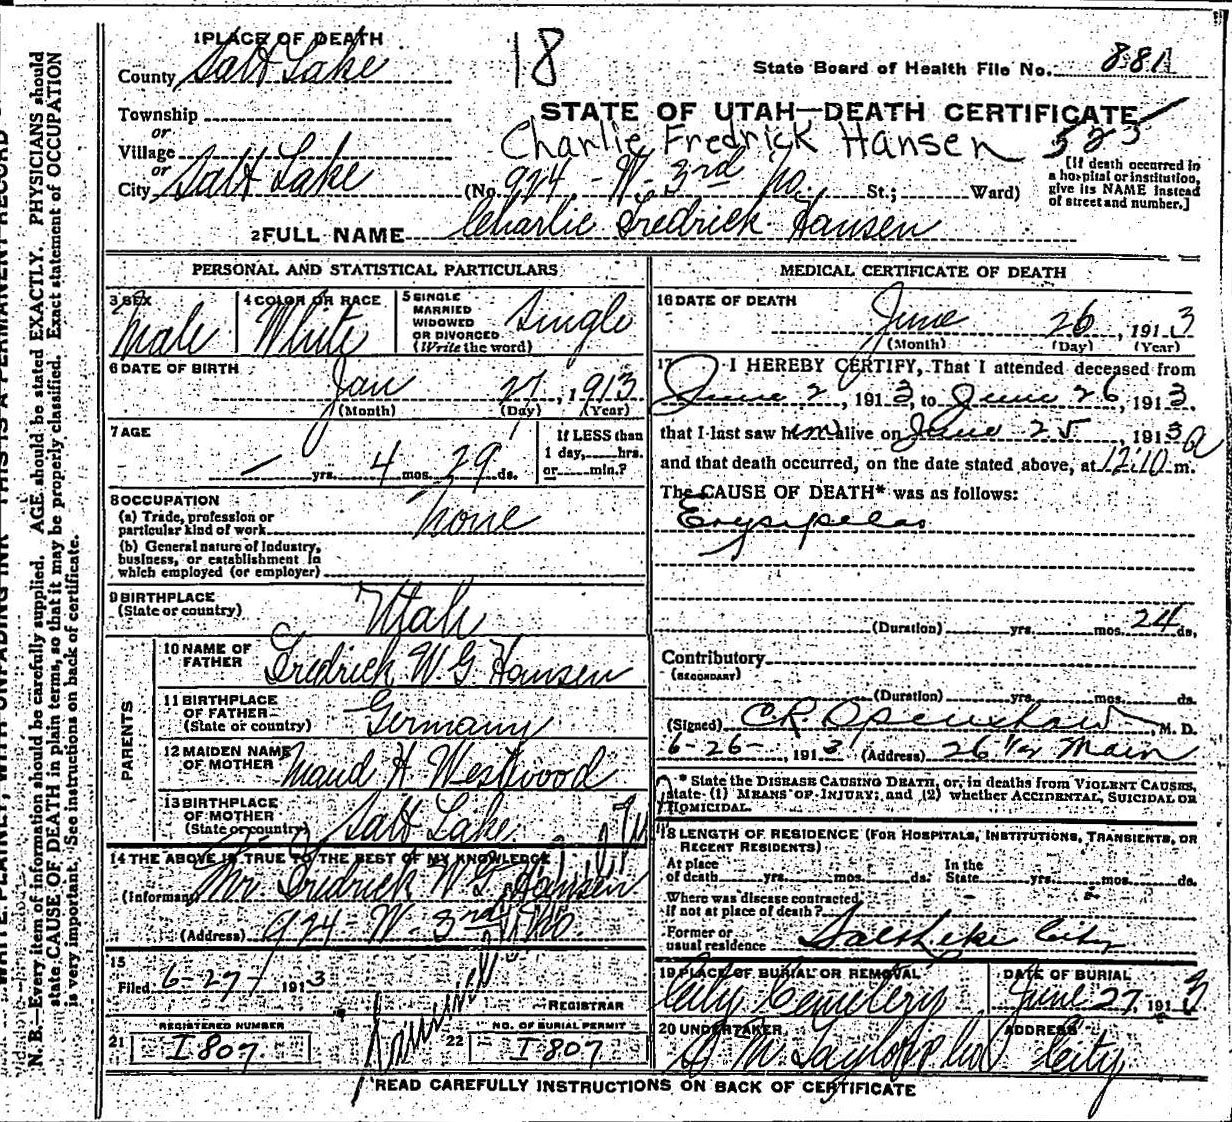 18
State Board of Health File No. 881
STATE OF UTAH—DEATH CERTIFICATE
Charlie Fredrick Hansen
[If death occurred in
a hospital or institution,
give its NAME instead
of street and number.]
1 PLACE OF DEATH
County Salt Lake
Township
or
Village
or
City Salt Lake (No. 924 - W. 3rd No. St.; Ward)
2 FULL NAME Charlie Fredrick Hansen
PERSONAL AND STATISTICAL PARTICULARS
3 SEX Male
4 COLOR OR RACE White
5 SINGLE
MARRIED
WIDOWED
OR DIVORCED
(Write the word) Single
6 DATE OF BIRTH
Jan 27, 1913
(Month) (Day) (Year)
7 AGE
— yrs. 4 mos. 29 ds.
If LESS than
1 day, hrs.
or min.?
8 OCCUPATION
(a) Trade, profession or
particular kind of work None
(b) General nature of industry,
business, or establishment in
which employed (or employer)
9 BIRTHPLACE
(State or country) Utah
PARENTS
10 NAME OF
FATHER Fredrick W. G. Hansen
11 BIRTHPLACE
OF FATHER
(State or country) Germany
12 MAIDEN NAME
OF MOTHER Maud H. Westwood
13 BIRTHPLACE
OF MOTHER
(State or country) Salt Lake
14 THE ABOVE IS TRUE TO THE BEST OF MY KNOWLEDGE
(Informant) Mr. Fredrick W G Hansen
(Address) 924 - W - 3rd No.
15
Filed 6-27- 1913
REGISTRAR
REGISTERED NUMBER
21 I807
NO. OF BURIAL PERMIT
22 I807
MEDICAL CERTIFICATE OF DEATH
16 DATE OF DEATH
June 26, 1913
(Month) (Day) (Year)
17 I HEREBY CERTIFY, That I attended deceased from
June 2, 1913, to June 26, 1913,
that I last saw him alive on June 25, 1913
and that death occurred, on the date stated above, at 12:10 a m.
The CAUSE OF DEATH* was as follows:
Erysipelas
(Duration) yrs. mos. 24 ds.
Contributory
(SECONDARY)
(Duration) yrs. mos. ds.
(Signed) C. R. Openshaw, M. D.
6-26-, 1913 (Address) 26 Main
* State the DISEASE CAUSING DEATH, or, in deaths from VIOLENT CAUSES,
state (1) MEANS OF INJURY; and (2) whether ACCIDENTAL, SUICIDAL OR
HOMICIDAL.
18 LENGTH OF RESIDENCE (FOR HOSPITALS, INSTITUTIONS, TRANSIENTS, OR
RECENT RESIDENTS)
At place
of death yrs. mos. ds.
In the
State yrs. mos. ds.
Where was disease contracted,
if not at place of death?
Former or
usual residence Salt Lake City
19 PLACE OF BURIAL OR REMOVAL
City Cemetery
DATE OF BURIAL
June 27, 1913
20 UNDERTAKER
ADDRESS
City
READ CAREFULLY INSTRUCTIONS ON BACK OF CERTIFICATE
N. B.—Every item of information should be carefully supplied. AGE should be stated EXACTLY. PHYSICIANS should
state CAUSE OF DEATH in plain terms, so that it may be properly classified. Exact statement of OCCUPATION
is very important. See instructions on back of certificate.